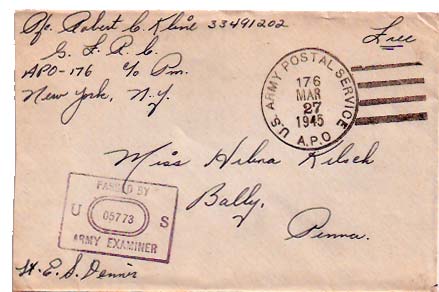 Pfc. Robert C. Kline 33491202
G. F. R. C.
APO-176 c/o Pm.
New York, N.Y.
Free
U.S. ARMY POSTAL SERVICE
176
MAR
27
1945
A.P.O.
Miss Hilma Kelsch
Bally,
Penna.
PASSED BY
U 05773 S
ARMY EXAMINER
Lt. E. S. Dennis